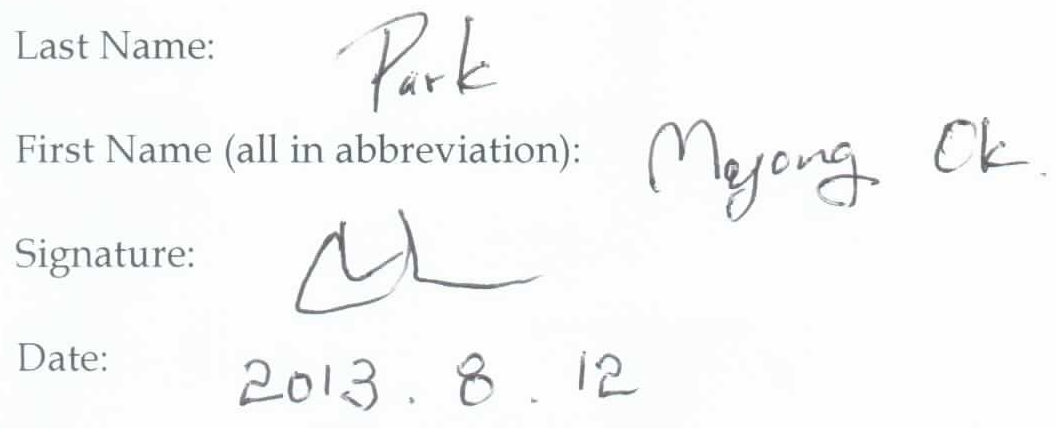 Last Name: Park
First Name (all in abbreviation): Meyong Ok.
Signature:
Date: 2013. 8. 12